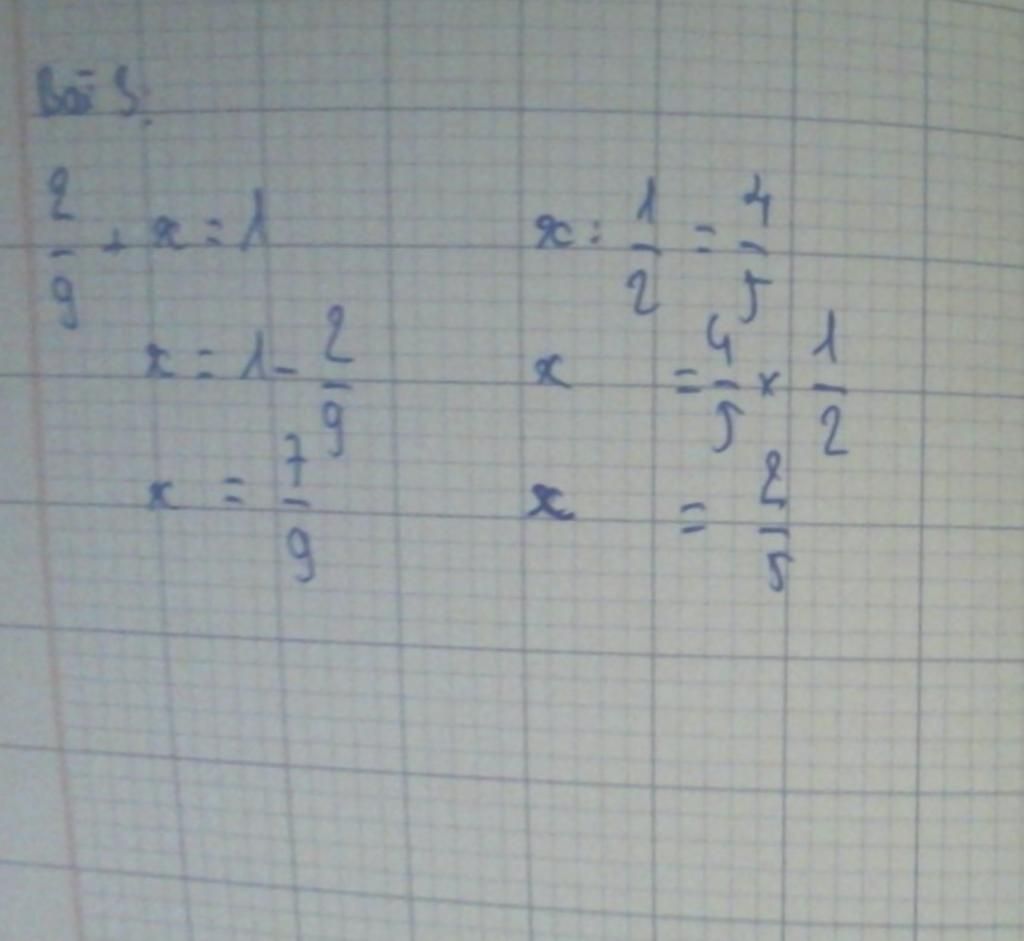 Bài 3:
2/9 + x = 1
x = 1 - 2/9
x = 7/9
x : 1/2 = 4/5
x = 4/5 x 1/2
x = 2/5